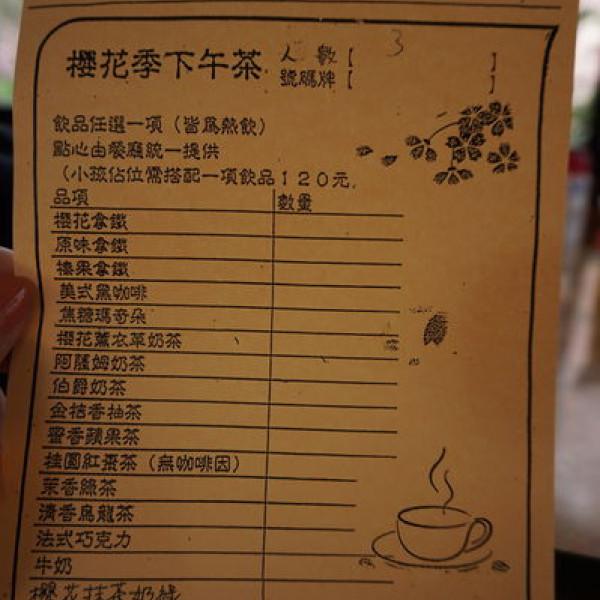 櫻花季下午茶
人 數【 3 】
號碼牌【 】
飲品任選一項（皆爲熱飲）
點心由餐廳統一提供
（小孩佔位需搭配一項飲品１２０元,
品項 數量
櫻花拿鐵
原味拿鐵
榛果拿鐵
美式黑咖啡
焦糖瑪奇朵
櫻花薰衣草奶茶
阿薩姆奶茶
伯爵奶茶
金桔香柚茶
蜜香蘋果茶
桂圓紅棗茶（無咖啡因）
茉香綠茶
清香烏龍茶
法式巧克力
牛奶
櫻花抹茶奶綠